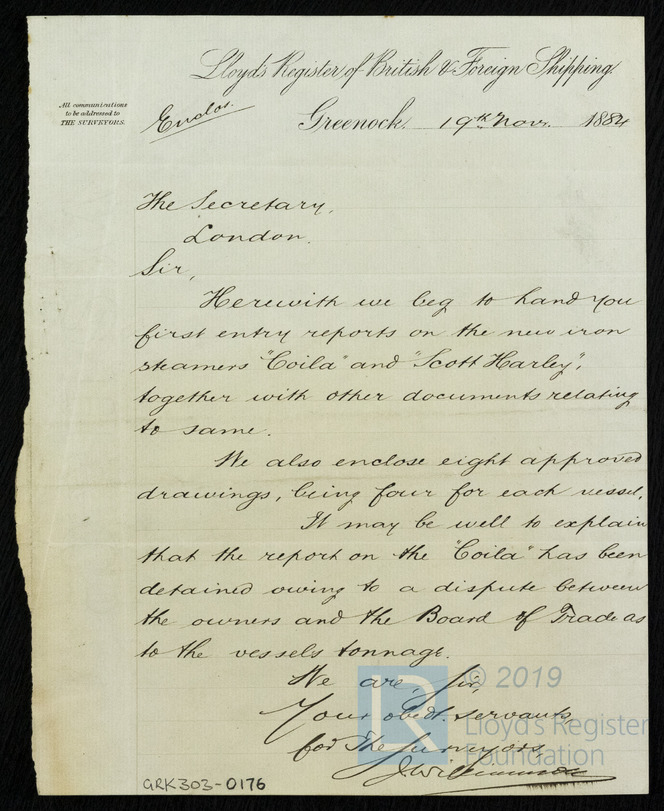 Lloyd's Register of British & Foreign Shipping.
All communications
to be addressed to
THE SURVEYORS.
Enclos.
Greenock. 19th Novr. 1884
The Secretary,
London.
Sir,
Herewith we beg to hand you
first entry reports on the new iron
steamers "Coila" and "Scott Harley",
together with other documents relating
to same.
We also enclose eight approved
drawings, being four for each vessel.
It may be well to explain
that the report on the "Coila" has been
detained owing to a dispute between
the owners and the Board of Trade as
to the vessels tonnage.
We are, Sir,
Your obedt. servants,
for The Surveyors,
LR © 2019
Lloyd's Register
Foundation
GRK303-0176